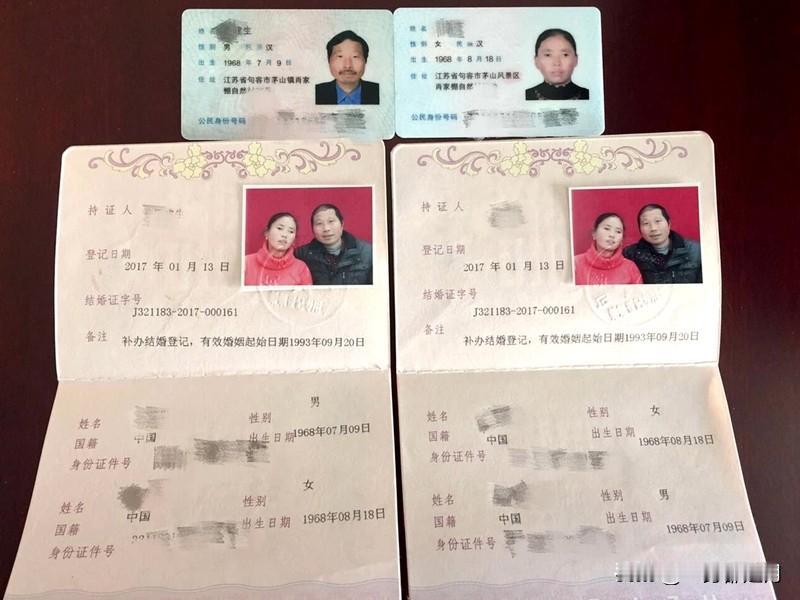 姓名
生
性别 男 民族 汉
出生 1968 年 7 月 9 日
住址 江苏省句容市茅山镇肖家
棚自然
公民身份号码
姓名
性别 女 民族 汉
出生 1968 年 8 月 18 日
住址 江苏省句容市茅山风景区
肖家棚自然
公民身份号码
持证人
登记日期
2017 年 01 月 13 日
结婚证字号
J321183-2017-000161
备注 补办结婚登记，有效婚姻起始日期1993年09月20日
姓名 性别 男
国籍 中国 出生日期 1968年07月09日
身份证件号
姓名 性别 女
国籍 中国 出生日期 1968年08月18日
身份证件号
持证人
登记日期
2017 年 01 月 13 日
结婚证字号
J321183-2017-000161
备注 补办结婚登记，有效婚姻起始日期1993年09月20日
姓名 性别 女
国籍 中国 出生日期 1968年08月18日
身份证件号
姓名 性别 男
国籍 中国 出生日期 1968年07月09日
身份证件号